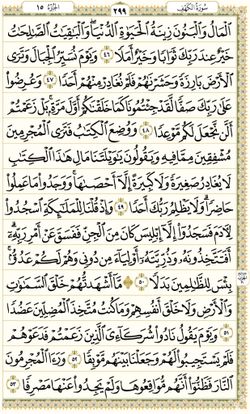 سُورَةُ الكَهْفِ ٢٩٩ الجُزْءُ ١٥
ٱلْمَالُ وَٱلْبَنُونَ زِينَةُ ٱلْحَيَوٰةِ ٱلدُّنْيَا وَٱلْبَٰقِيَٰتُ ٱلصَّٰلِحَٰتُ
خَيْرٌ عِندَ رَبِّكَ ثَوَابًا وَخَيْرٌ أَمَلًا ٤٦ وَيَوْمَ نُسَيِّرُ ٱلْجِبَالَ وَتَرَى
ٱلْأَرْضَ بَارِزَةً وَحَشَرْنَٰهُمْ فَلَمْ نُغَادِرْ مِنْهُمْ أَحَدًا ٤٧ وَعُرِضُوا۟
عَلَىٰ رَبِّكَ صَفًّا لَّقَدْ جِئْتُمُونَا كَمَا خَلَقْنَٰكُمْ أَوَّلَ مَرَّةٍۭ بَلْ زَعَمْتُمْ
أَلَّن نَّجْعَلَ لَكُم مَّوْعِدًا ٤٨ وَوُضِعَ ٱلْكِتَٰبُ فَتَرَى ٱلْمُجْرِمِينَ
مُشْفِقِينَ مِمَّا فِيهِ وَيَقُولُونَ يَٰوَيْلَتَنَا مَالِ هَٰذَا ٱلْكِتَٰبِ
لَا يُغَادِرُ صَغِيرَةً وَلَا كَبِيرَةً إِلَّآ أَحْصَىٰهَا وَوَجَدُوا۟ مَا عَمِلُوا۟
حَاضِرًا وَلَا يَظْلِمُ رَبُّكَ أَحَدًا ٤٩ وَإِذْ قُلْنَا لِلْمَلَٰٓئِكَةِ ٱسْجُدُوا۟
لِـَٔادَمَ فَسَجَدُوٓا۟ إِلَّآ إِبْلِيسَ كَانَ مِنَ ٱلْجِنِّ فَفَسَقَ عَنْ أَمْرِ رَبِّهِۦٓ
أَفَتَتَّخِذُونَهُۥ وَذُرِّيَّتَهُۥٓ أَوْلِيَآءَ مِن دُونِى وَهُمْ لَكُمْ عَدُوٌّۢ
بِئْسَ لِلظَّٰلِمِينَ بَدَلًا ٥٠ مَّآ أَشْهَدتُّهُمْ خَلْقَ ٱلسَّمَٰوَٰتِ
وَٱلْأَرْضِ وَلَا خَلْقَ أَنفُسِهِمْ وَمَا كُنتُ مُتَّخِذَ ٱلْمُضِلِّينَ عَضُدًا
٥١ وَيَوْمَ يَقُولُ نَادُوا۟ شُرَكَآءِىَ ٱلَّذِينَ زَعَمْتُمْ فَدَعَوْهُمْ
فَلَمْ يَسْتَجِيبُوا۟ لَهُمْ وَجَعَلْنَا بَيْنَهُم مَّوْبِقًا ٥٢ وَرَءَا ٱلْمُجْرِمُونَ
ٱلنَّارَ فَظَنُّوٓا۟ أَنَّهُم مُّوَاقِعُوهَا وَلَمْ يَجِدُوا۟ عَنْهَا مَصْرِفًا ٥٣